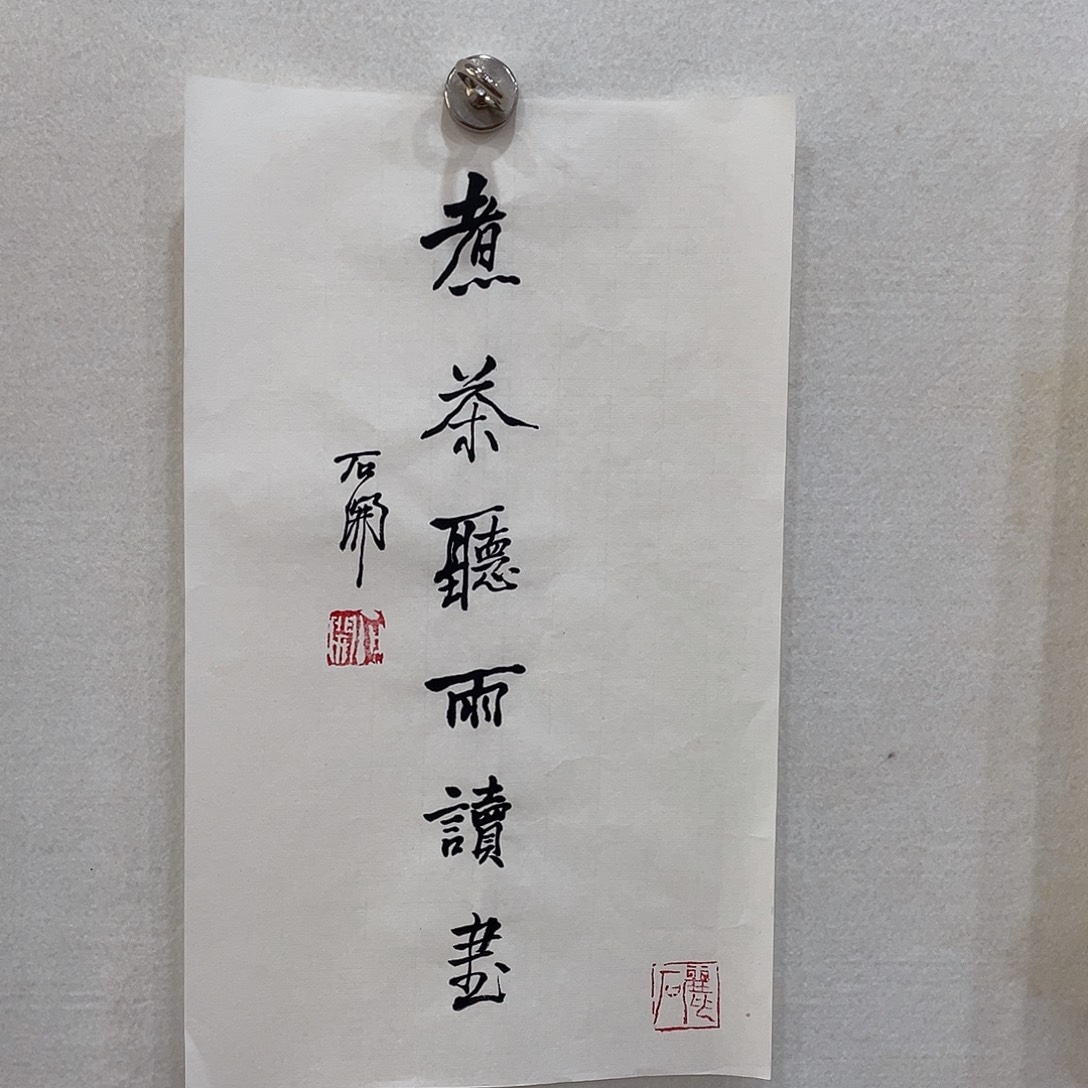 煮茶聽雨讀書
石開